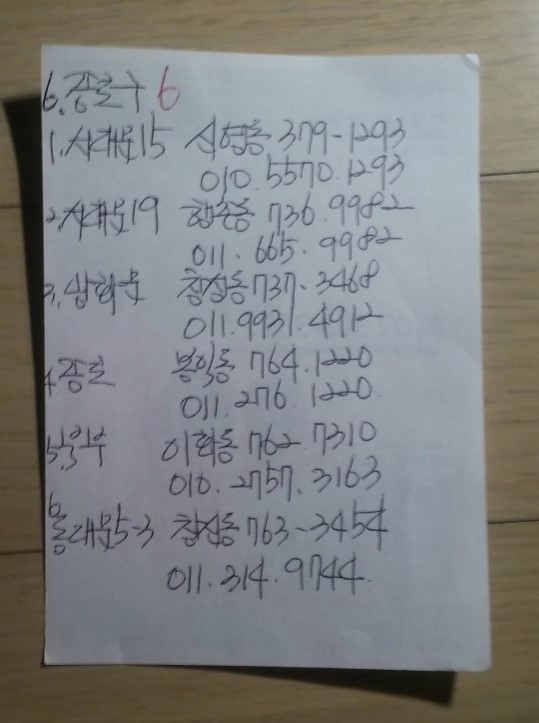 6. 종로구 6
1. 서대문15 379-1293
010. 5570. 1293
2. 서대문19 736. 9982
011. 665. 9982
3. 737. 3468
011. 9931. 4912
4. 종로 봉익동 764. 1220
011. 276. 1220
5. 이화동 762. 7310
010. 2757. 3163
6. 동대문5-3 763-3454
011. 314. 9744.